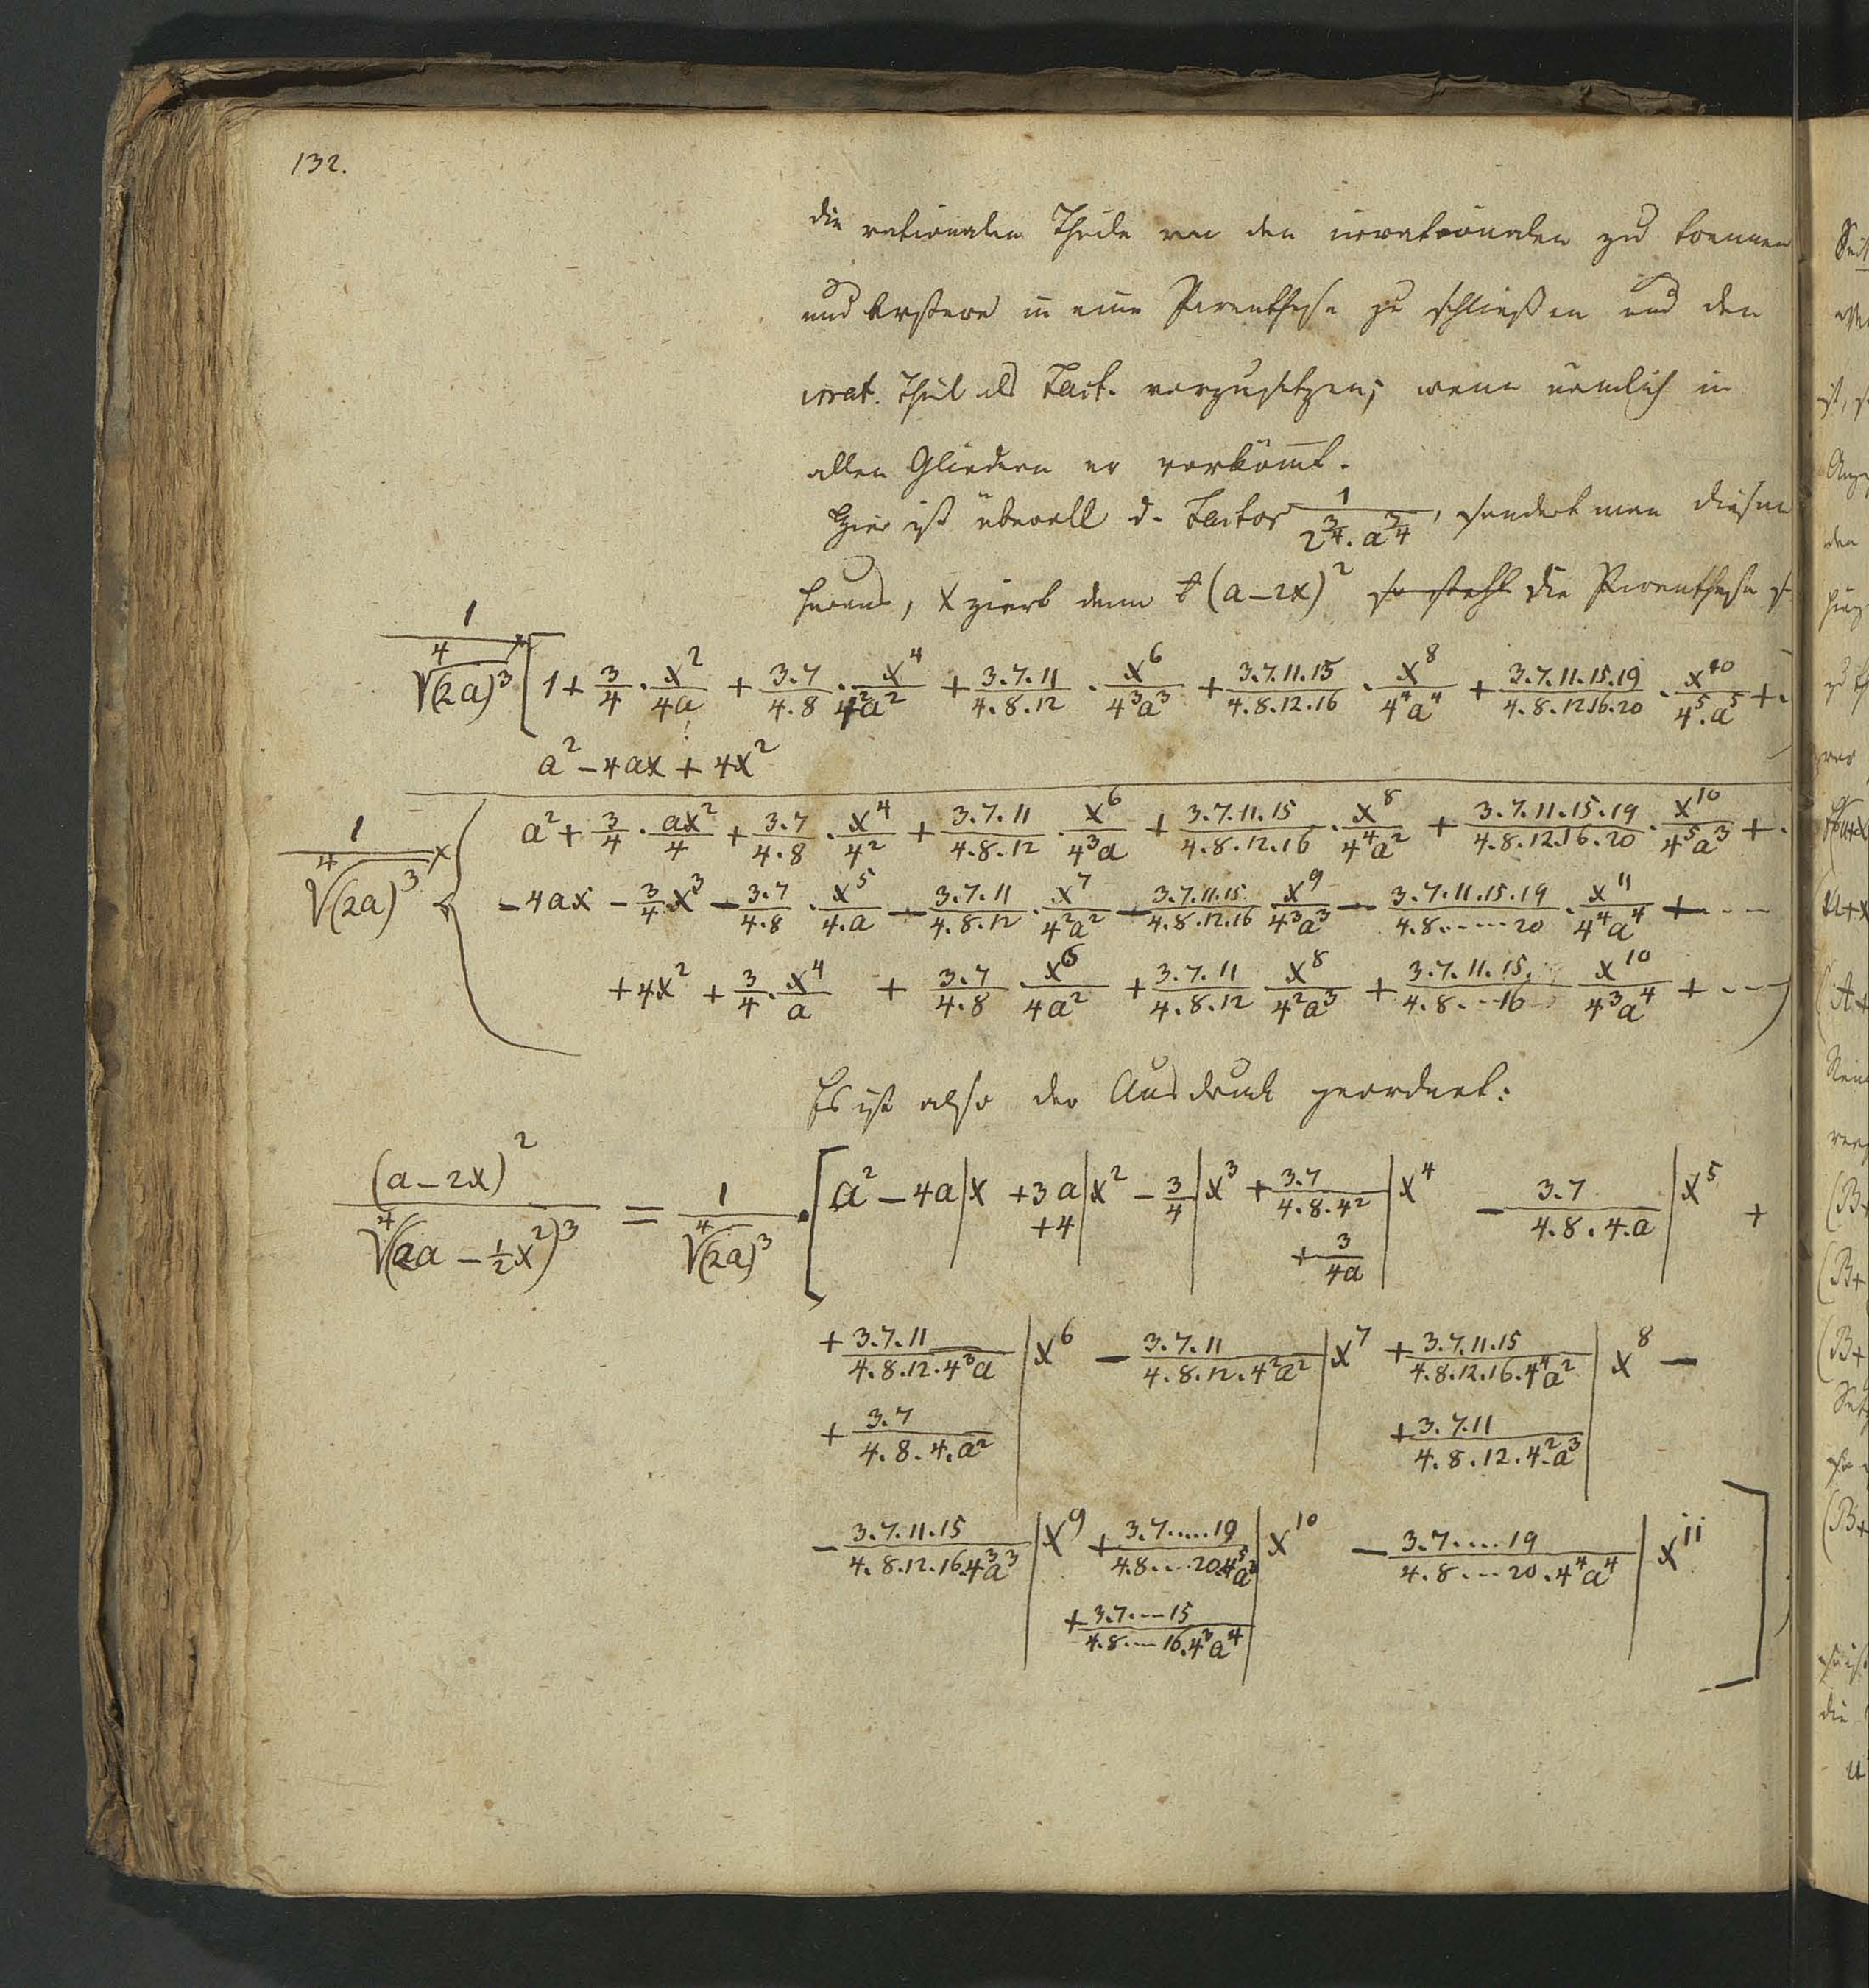 132.
die rationalen Theile von den irrationalen zu trennen
und Erstere in eine Parenthese zu schließen und den
irrat. Theil als Fact. vorzusetzen; wenn nemlich in
allen Gliedern er vorkömt.
Hier ist überall d. Factor 1/(2^{3/4}. a^{3/4}), sondert man diesen
heraus, X ziert denn (a-2x)^2 so steht die Parenthese
1/∜(2a)^3 × [1 + 3/4 . x^2/4a + 3.7/4.8 . x^4/4^2a^2 + 3.7.11/4.8.12 . x^6/4^3a^3 + 3.7.11.15/4.8.12.16 . x^8/4^4a^4 + 3.7.11.15.19/4.8.12.16.20 . x^10/4^5.a^5 + .
a^2 - 4ax + 4x^2
1/∜(2a)^3 × ( a^2 + 3/4 . ax^2/4 + 3.7/4.8 . x^4/4^2 + 3.7.11/4.8.12 . x^6/4^3a + 3.7.11.15/4.8.12.16 . x^8/4^4a^2 + 3.7.11.15.19/4.8.12.16.20 . x^10/4^5a^3 + .
- 4ax - 3/4 . x^3 - 3.7/4.8 . x^5/4.a - 3.7.11/4.8.12 . x^7/4^2a^2 - 3.7.11.15/4.8.12.16 . x^9/4^3a^3 - 3.7.11.15.19/4.8.....20 . x^11/4^4a^4 + ---
+ 4x^2 + 3/4 . x^4/a + 3.7/4.8 . x^6/4a^2 + 3.7.11/4.8.12 . x^8/4^2a^3 + 3.7.11.15./4.8...16 . x^10/4^3a^4 + --- )
Es ist also der Ausdruck geordnet:
(a-2x)^2/∜(2a - 1/2 x^2)^3 = 1/∜(2a)^3 . [ a^2 - 4a|x + 3a|x^2 - 3/4|x^3 + 3.7/4.8.4^2|x^4 - 3.7/4.8.4.a|x^5 +
+4| + 3/4a|
+ 3.7.11/4.8.12.4^3a|x^6 - 3.7.11/4.8.12.4^2a^2|x^7 + 3.7.11.15/4.8.12.16.4^4a^2|x^8 -
+ 3.7/4.8.4.a^2| + 3.7.11/4.8.12.4^2.a^3|
- 3.7.11.15/4.8.12.16.4^3a^3|x^9 + 3.7.....19/4.8...20.4^5a^3|x^10 - 3.7....19/4.8...20.4^4a^4|x^11 ]
+ 3.7...15/4.8...16.4^3a^4|